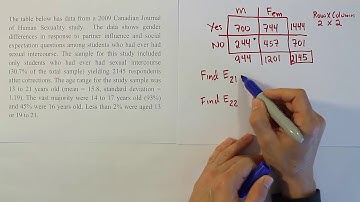 The table below has data from a 2009 Canadian Journal
of Human Sexuality study. The data shows gender
differences in response to partner influence and social
expectation questions among students who had ever had
sexual intercourse. The sample for this study included
only students who had ever had sexual intercourse
(30.7% of the total sample) yielding 2145 respondents
after corrections. The age range for the study sample was
13 to 21 years old (mean = 15.8, standard deviation =
1.19). The vast majority were 14 to 17 years old (93%)
and 45% were 16 years old. Less than 2% were aged 13
or 19 to 21.
M Fem
Row x Columns
2 x 2
Yes 700 744 1444
No 244 457 701
944 1201 2145
Find E21
Find E22